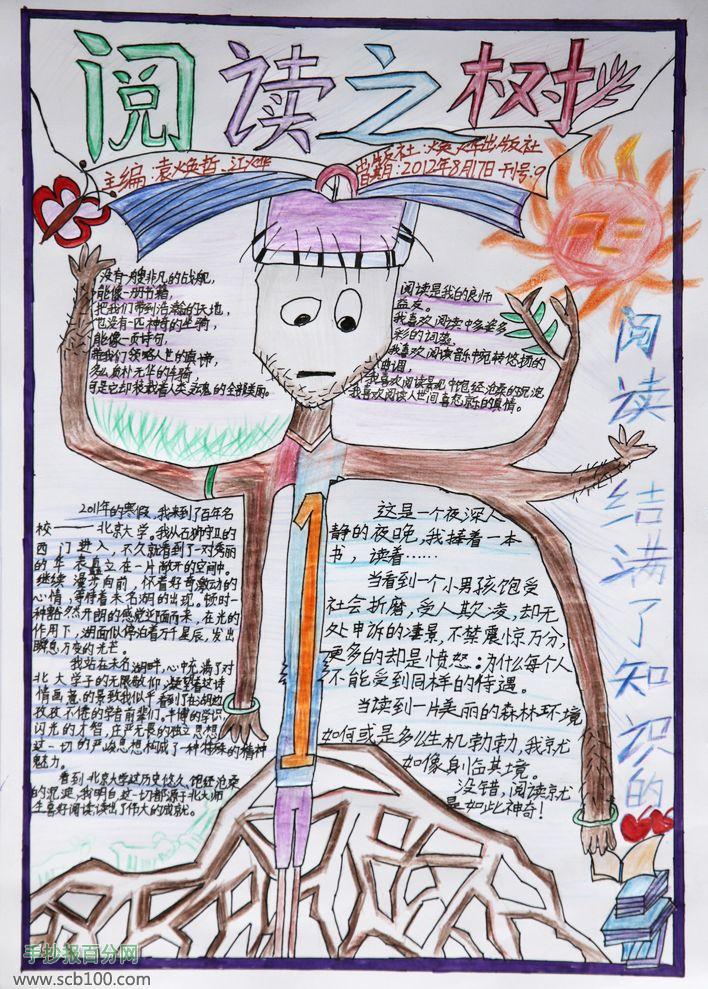 阅读之树
主编:袁焕哲、江烨
出版社:焕烨出版社
2012年8月17日 刊号:9
没有一艘非凡的战舰,
能像一册书籍,
把我们带到浩瀚的天地,
也没有一匹神奇的坐骑,
能像一页诗句,
带我们领略人世的真谛,
多么质朴无华的车骑
可是它却装载着人类灵魂的全部美丽。
阅读是我的良师
益友。
我喜欢阅读中多姿多
彩的词藻。
我喜欢阅读音乐中宛转悠扬的
曲调,
我喜欢阅读景观中饱经沧桑的沉淀
我喜欢阅读人世间喜怒哀乐的真情。
阅读结满了知识的
2011年的寒假,我来到了百年名
校——北京大学。我从石狮守卫的
西门进入,不久就看到了一对秀丽
的华表矗立在一片敞开的空间中。
继续漫步向前,怀着好奇激动的
心情,等待着未名湖的出现。顿时一
种豁然开朗的感觉迎面而来,在光的
作用下,湖面似停泊着万千星辰,发出
瞬息万变的光芒。
我站在未名湖畔,心中充满了对
北大学子的无限敬仰,凝望着这诗
情画意的景致我似乎看到了在湖边
孜孜不倦的学者前辈们。博的学识
闪光的才智,庄严无畏的独立思想
这一切的严峻思想构成了一种特殊的精神
魅力。
看到北京大学这历史悠久、饱经沧桑
的沉淀,我明白这一切都源于北大师
生喜好阅读,读出了伟大的成就。
这是一个夜深人
静的夜晚,我捧着一本
书,读着……
当看到一个小男孩饱受
社会折磨,受人欺凌,却无
处申诉的凄景,不禁震惊万分,
更多的却是愤怒:为什么每个人
不能受到同样的待遇。
当读到一片美丽的森林环境
如何或是多么生机勃勃,我就
如像身临其境。
没错,阅读就
是如此神奇!
1
手抄报百分网
www.scb100.com